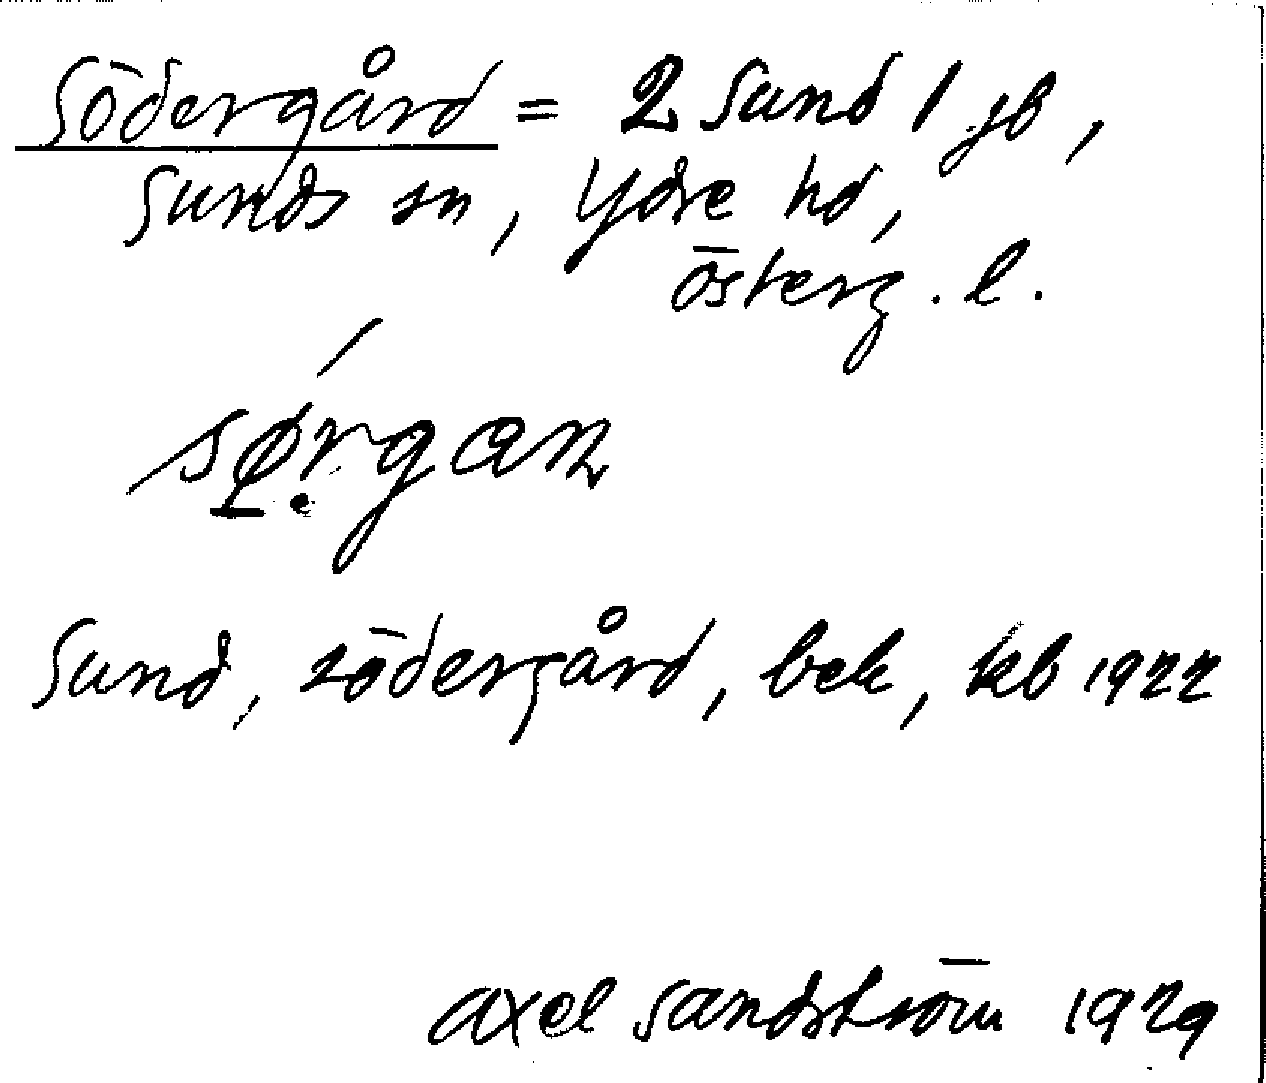 Södergård = 2 Sund 1 jb,
Sunds sn, Ydre hd,
Österg. l.
sø̱ṛgan
Sund, södergård, bek, kb 1922
Axel Sandström 1929